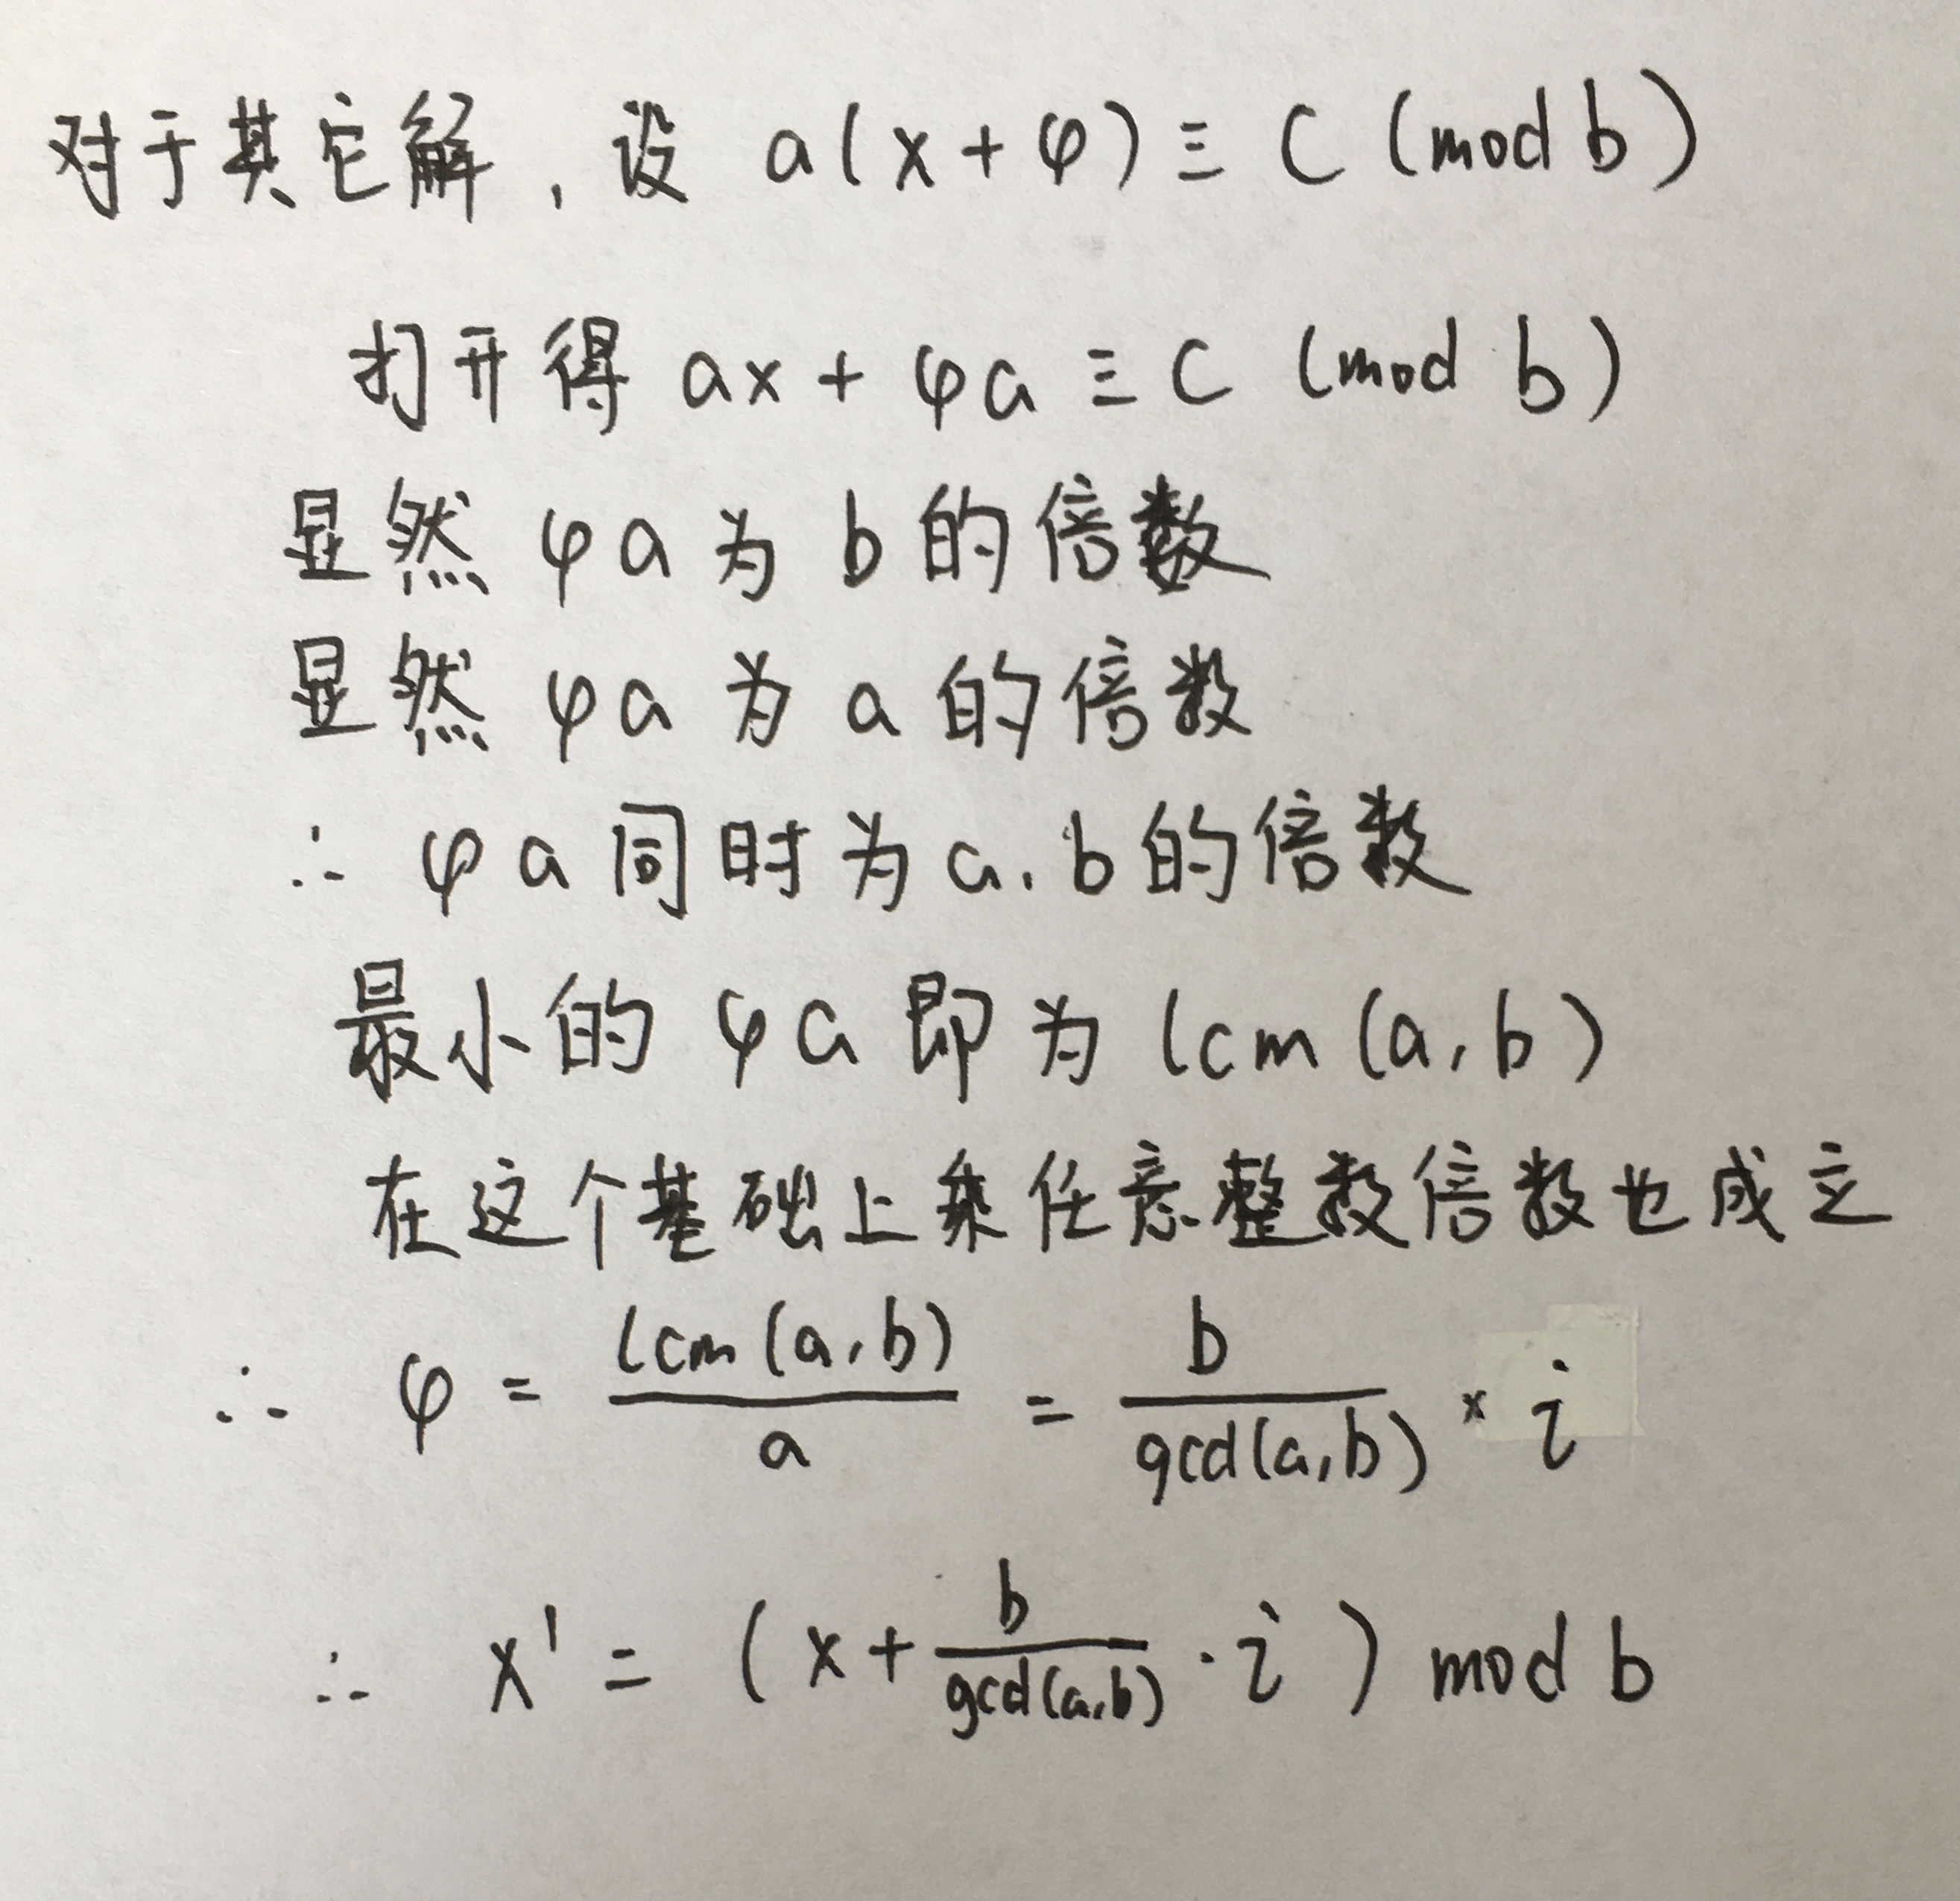 对于其它解，设 a(x+φ)≡C (mod b)
打开得 ax+φa≡C (mod b)
显然 φa 为 b 的倍数
显然 φa 为 a 的倍数
∴ φa 同时为 a,b 的倍数
最小的 φa 即为 lcm(a,b)
在这个基础上乘任意整数倍数也成立
∴ φ = lcm(a,b)/a = b/gcd(a,b) × i
∴ x' = (x + b/gcd(a,b) · i) mod b